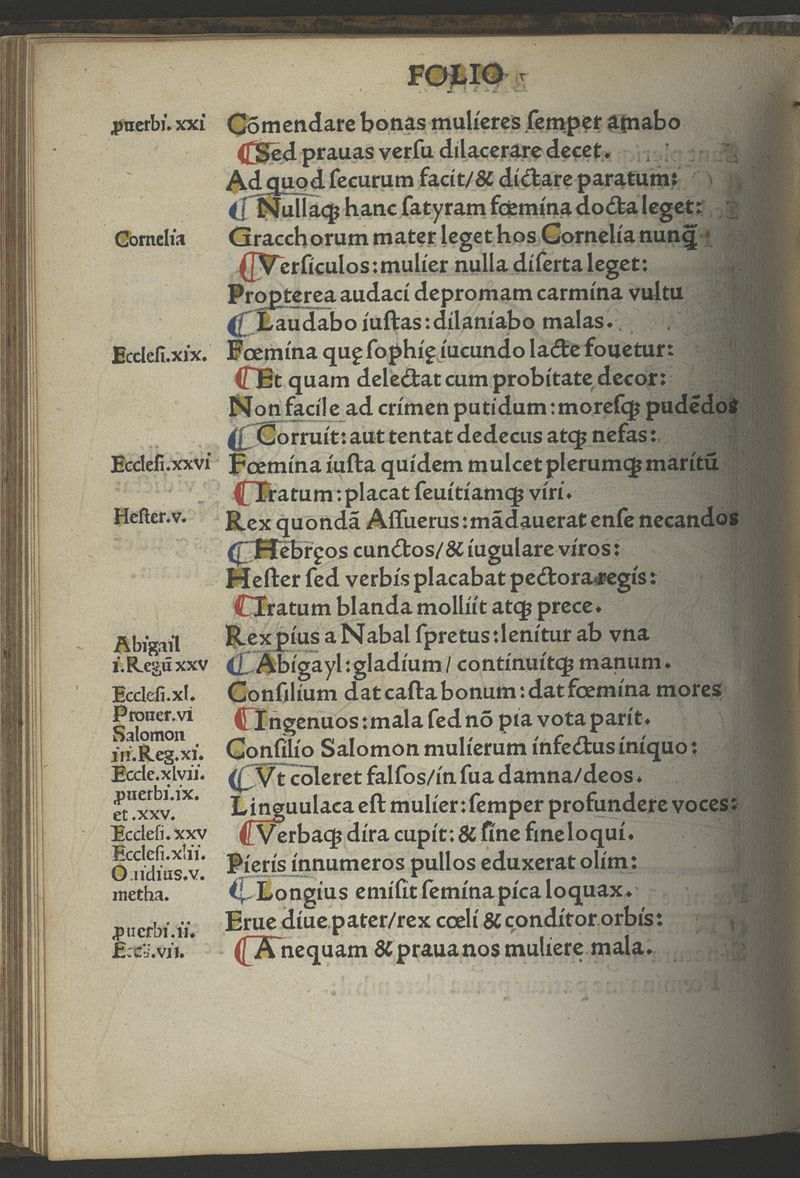 FOLIO
ꝓuerbi. xxi Cōmendare bonas mulieres ſemper amabo
¶Sed prauas verſu dilacerare decet.
Ad quod ſecurum facit/& dictare paratum:
¶ Nullaqȝ hanc ſatyram fœmina docta leget:
Cornelia Gracchorum mater leget hos Cornelia nunq̄
¶Verſiculos:mulier nulla diſerta leget:
Propterea audaci depromam carmina vultu
¶ Laudabo iuſtas:dilaniabo malas.
Eccleſi.xix. Fœmina quę ſophię iucundo lacte fouetur:
¶Et quam delectat cum probitate decor:
Non facile ad crimen putidum:moreſqȝ pudēdos
¶ Corruit:aut tentat dedecus atqȝ nefas:
Eccleſi.xxvi Fœmina iuſta quidem mulcet plerumqȝ maritū
¶Iratum:placat ſeuitiamqȝ viri.
Heſter.v. Rex quondā Aſſuerus:mādauerat enſe necandos
¶Hebręos cunctos/& iugulare viros:
Heſter ſed verbis placabat pectora regis:
¶Iratum blanda molliit atqȝ prece.
Abigail Rex pius a Nabal ſpretus:lenitur ab vna
i.Regū xxv ¶ Abigayl:gladium/ continuitqȝ manum.
Eccleſi.xl. Conſilium dat caſta bonum:dat fœmina mores
Prouer.vi ¶Ingenuos:mala ſed nō pia vota parit.
Salomon
iii.Reg.xi. Conſilio Salomon mulierum infectus iniquo:
Eccle.xlvii. ¶Vt coleret falſos/in ſua damna/deos.
ꝓuerbi.ix. Linguulaca eſt mulier:ſemper profundere voces:
et .xxv.
Eccleſi.xxv ¶Verbaqȝ dira cupit:& ſine fine loqui.
Eccleſi.xlii. Pieris innumeros pullos eduxerat olim:
Ouidius.v.
metha. ¶ Longius emiſit femina pica loquax.
Erue diue pater/rex cœli & conditor orbis:
ꝓuerbi.ii.
Eccſ.vii. ¶A nequam & praua nos muliere mala.